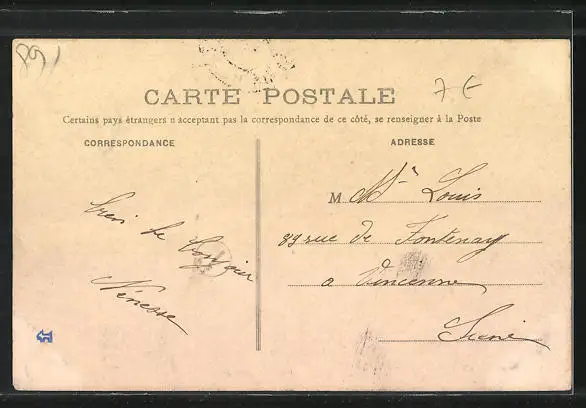 89
7 €
CARTE POSTALE
Certains pays étrangers n acceptant pas la correspondance de ce côté, se renseigner à la Poste
CORRESPONDANCE
ADRESSE
M Mr Louis
89 rue de Fontenay
a Vincenne
Seine
de